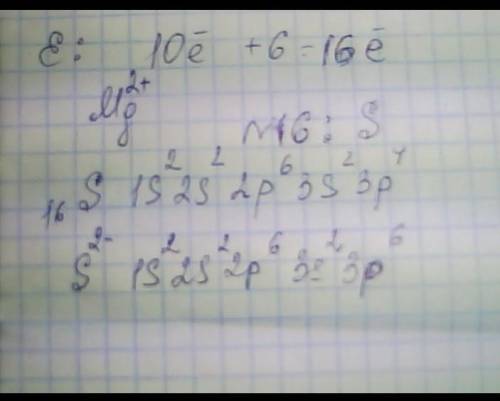 Ē: 10ē +6 = 16ē
Mg²⁺
№16: S
₁₆S 1S² 2S² 2p⁶ 3S² 3p⁴
S²⁻ 1S² 2S² 2p⁶ 3s² 3p⁶